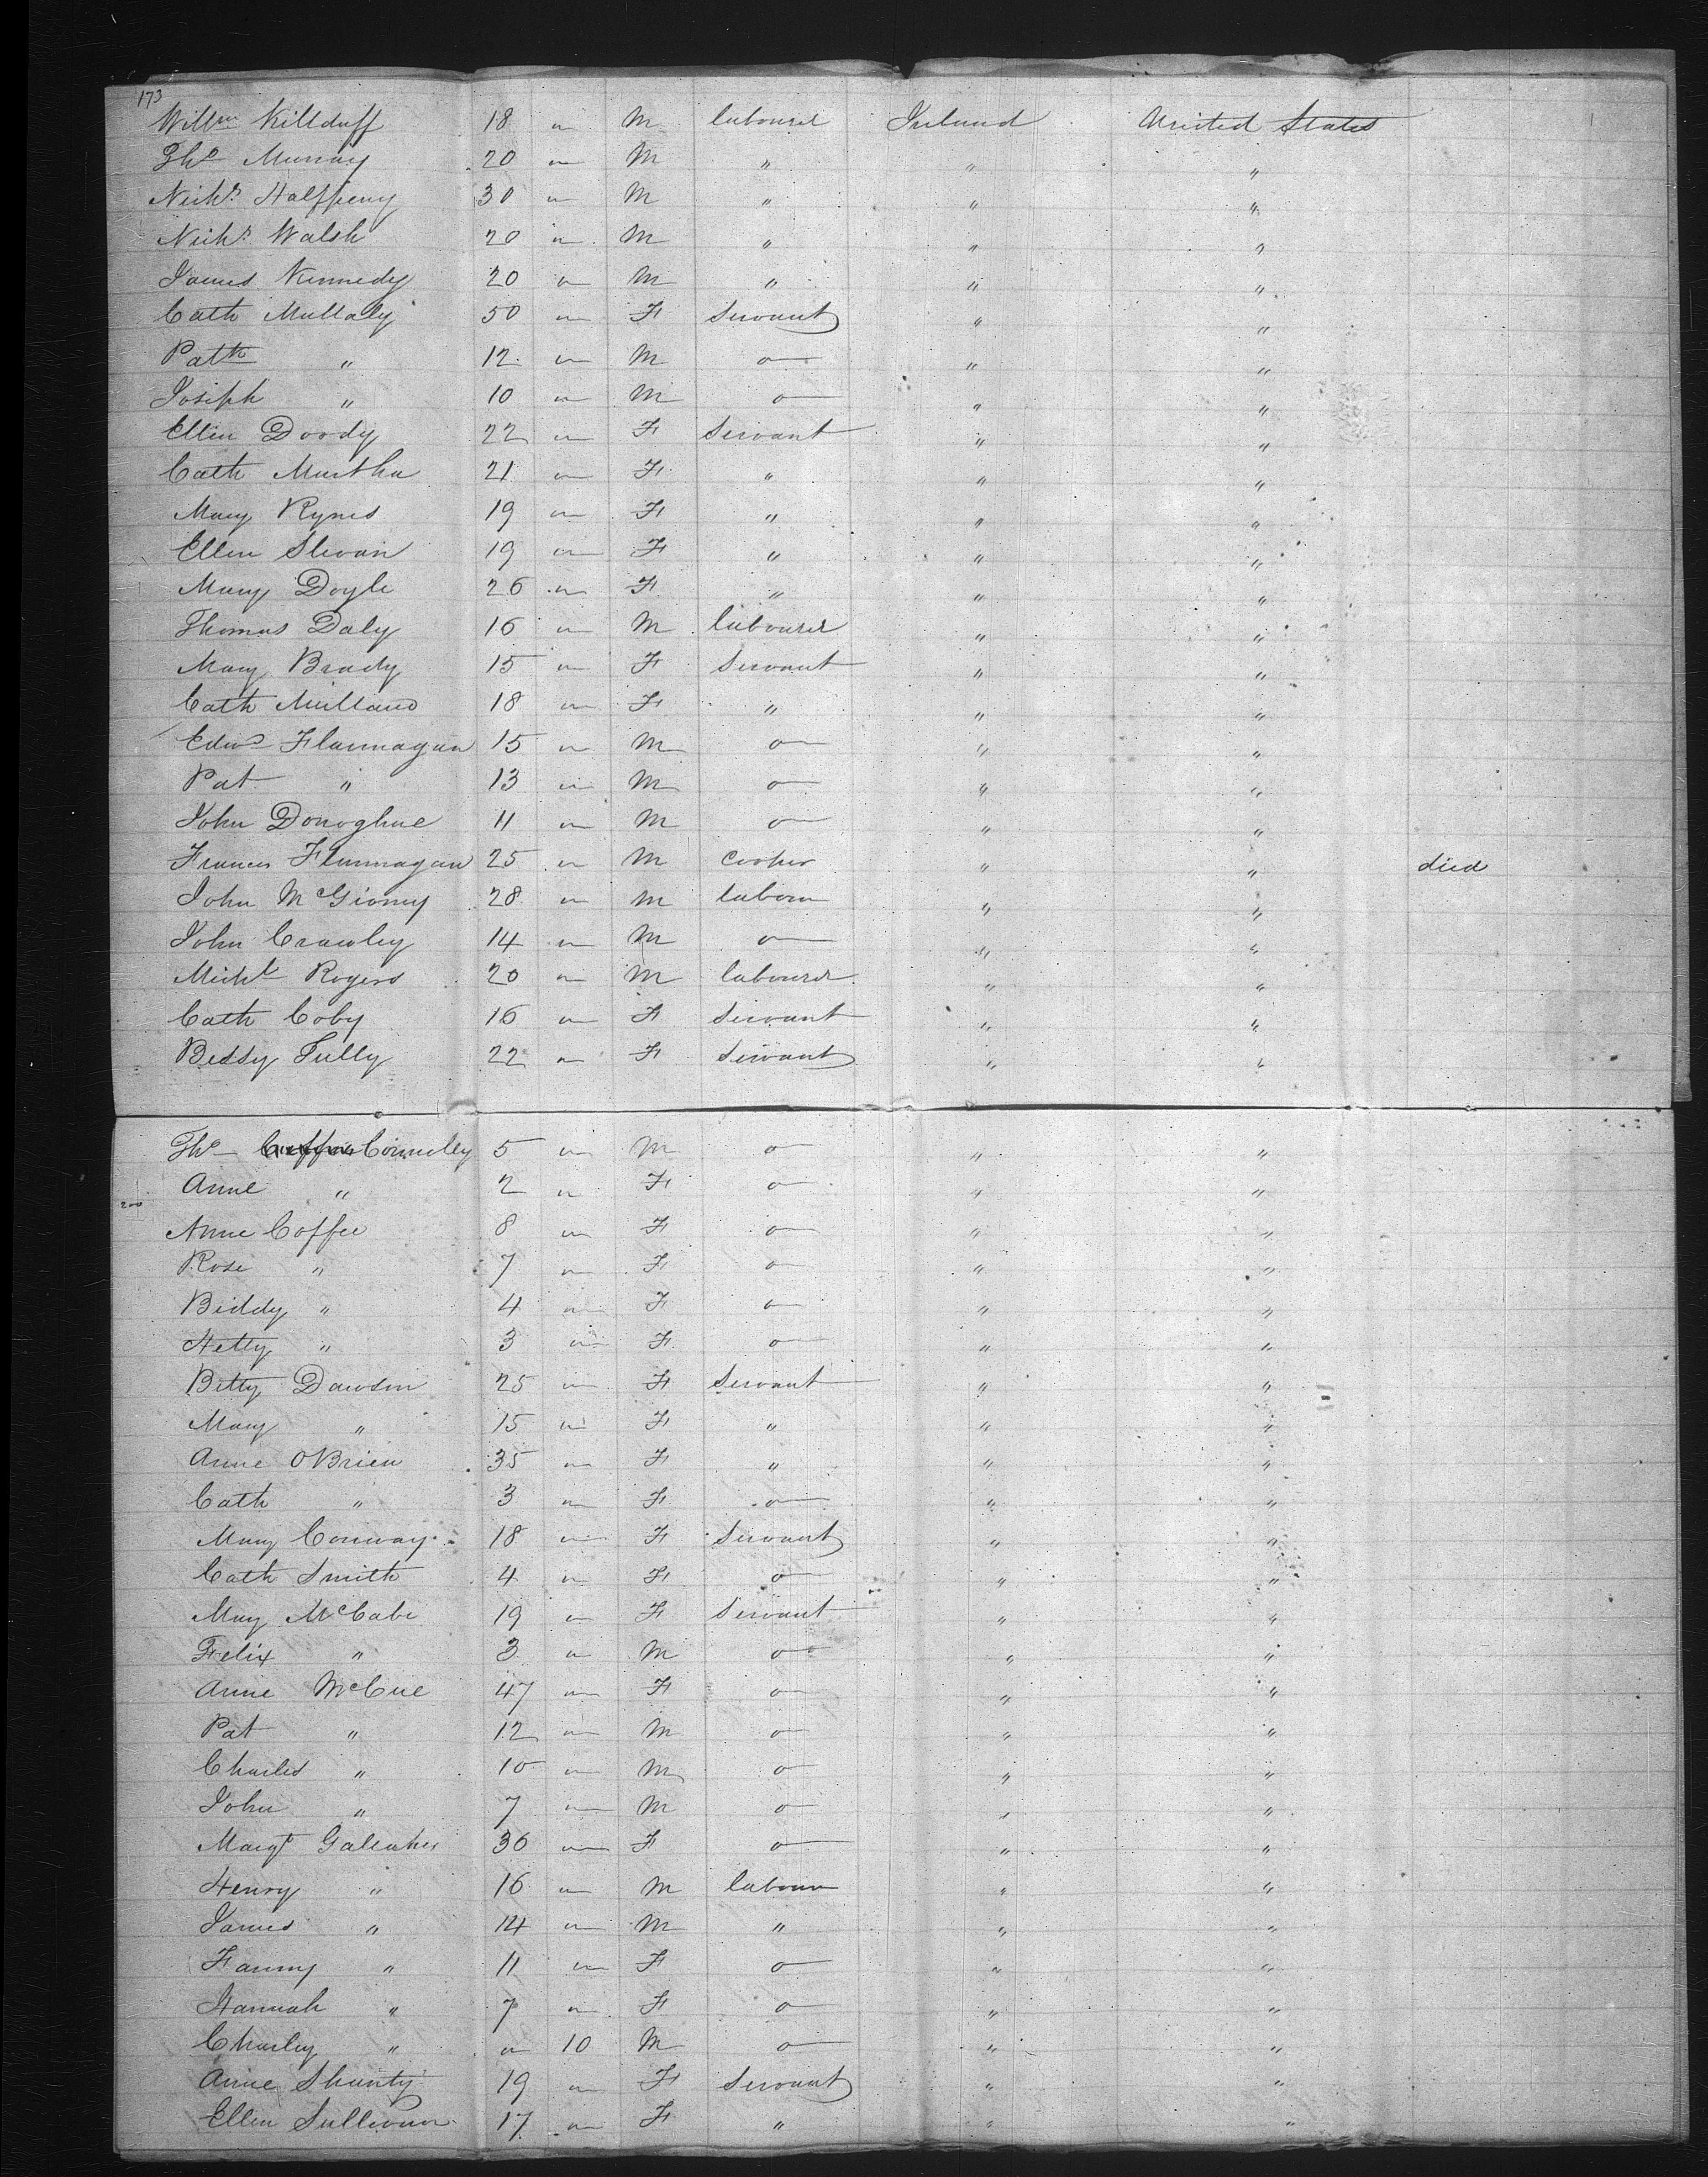 173
Willm Killduff 18 " M labourer Ireland United States
Tho Murray 20 " M " " "
Nichs Halfpeny 30 " M " " "
Nichs Walsh 20 " M " " "
James Kennedy 20 " M " " "
Cath Mullaly 50 " F Servant " "
Patk " 12 " M o " "
Joseph " 10 " M o " "
Ellen Doody 22 " F Servant " "
Cath Murtha 21 " F " " "
Mary Rynes 19 " F " " "
Ellen Slevan 19 " F " " "
Mary Doyle 26 " F " " "
Thomas Daly 16 " M labourer " "
Mary Brady 15 " F Servant " "
Cath 18 " F " " "
Edwd Flannagan 15 " M o " "
Pat " 13 " M o " "
John Donoghue 11 " M o " "
Francis Flannagan 25 " M " " died
John 28 " M labour " "
John Crawley 14 " M o " "
Michl Rogers 20 " M labourer " "
Cath Coby 16 " F Servant " "
Bessy Tully 22 " F Servant " "
Tho Connolly 5 " M o " "
Anne " 2 " F o " "
200
Anne Coffee 8 " F o " "
Rose " 7 " F o " "
Biddy " 4 " F o " "
Hetty " 3 " F o " "
Betty Dawson 25 " F Servant " "
Mary " 15 " F " " "
Anne OBrien 35 " F " " "
Cath " 3 " F o " "
Mary Conway 18 " F Servant " "
Cath Smith 4 " F o " "
May McCabe 19 " F Servant " "
Felix " 3 " M o " "
Anne McCue 47 " F o " "
Pat " 12 " M o " "
Charles " 10 " M o " "
John " 7 " M o " "
Margt Galeaher 36 " F o " "
Henry " 16 " M labour " "
James " 14 " M " " "
Fanny " 11 " F o " "
Hannah " 7 " F o " "
Charley " " 10 M o " "
Anne Shunty 19 " F Servant " "
Ellen Sullivan 17 " F " " "